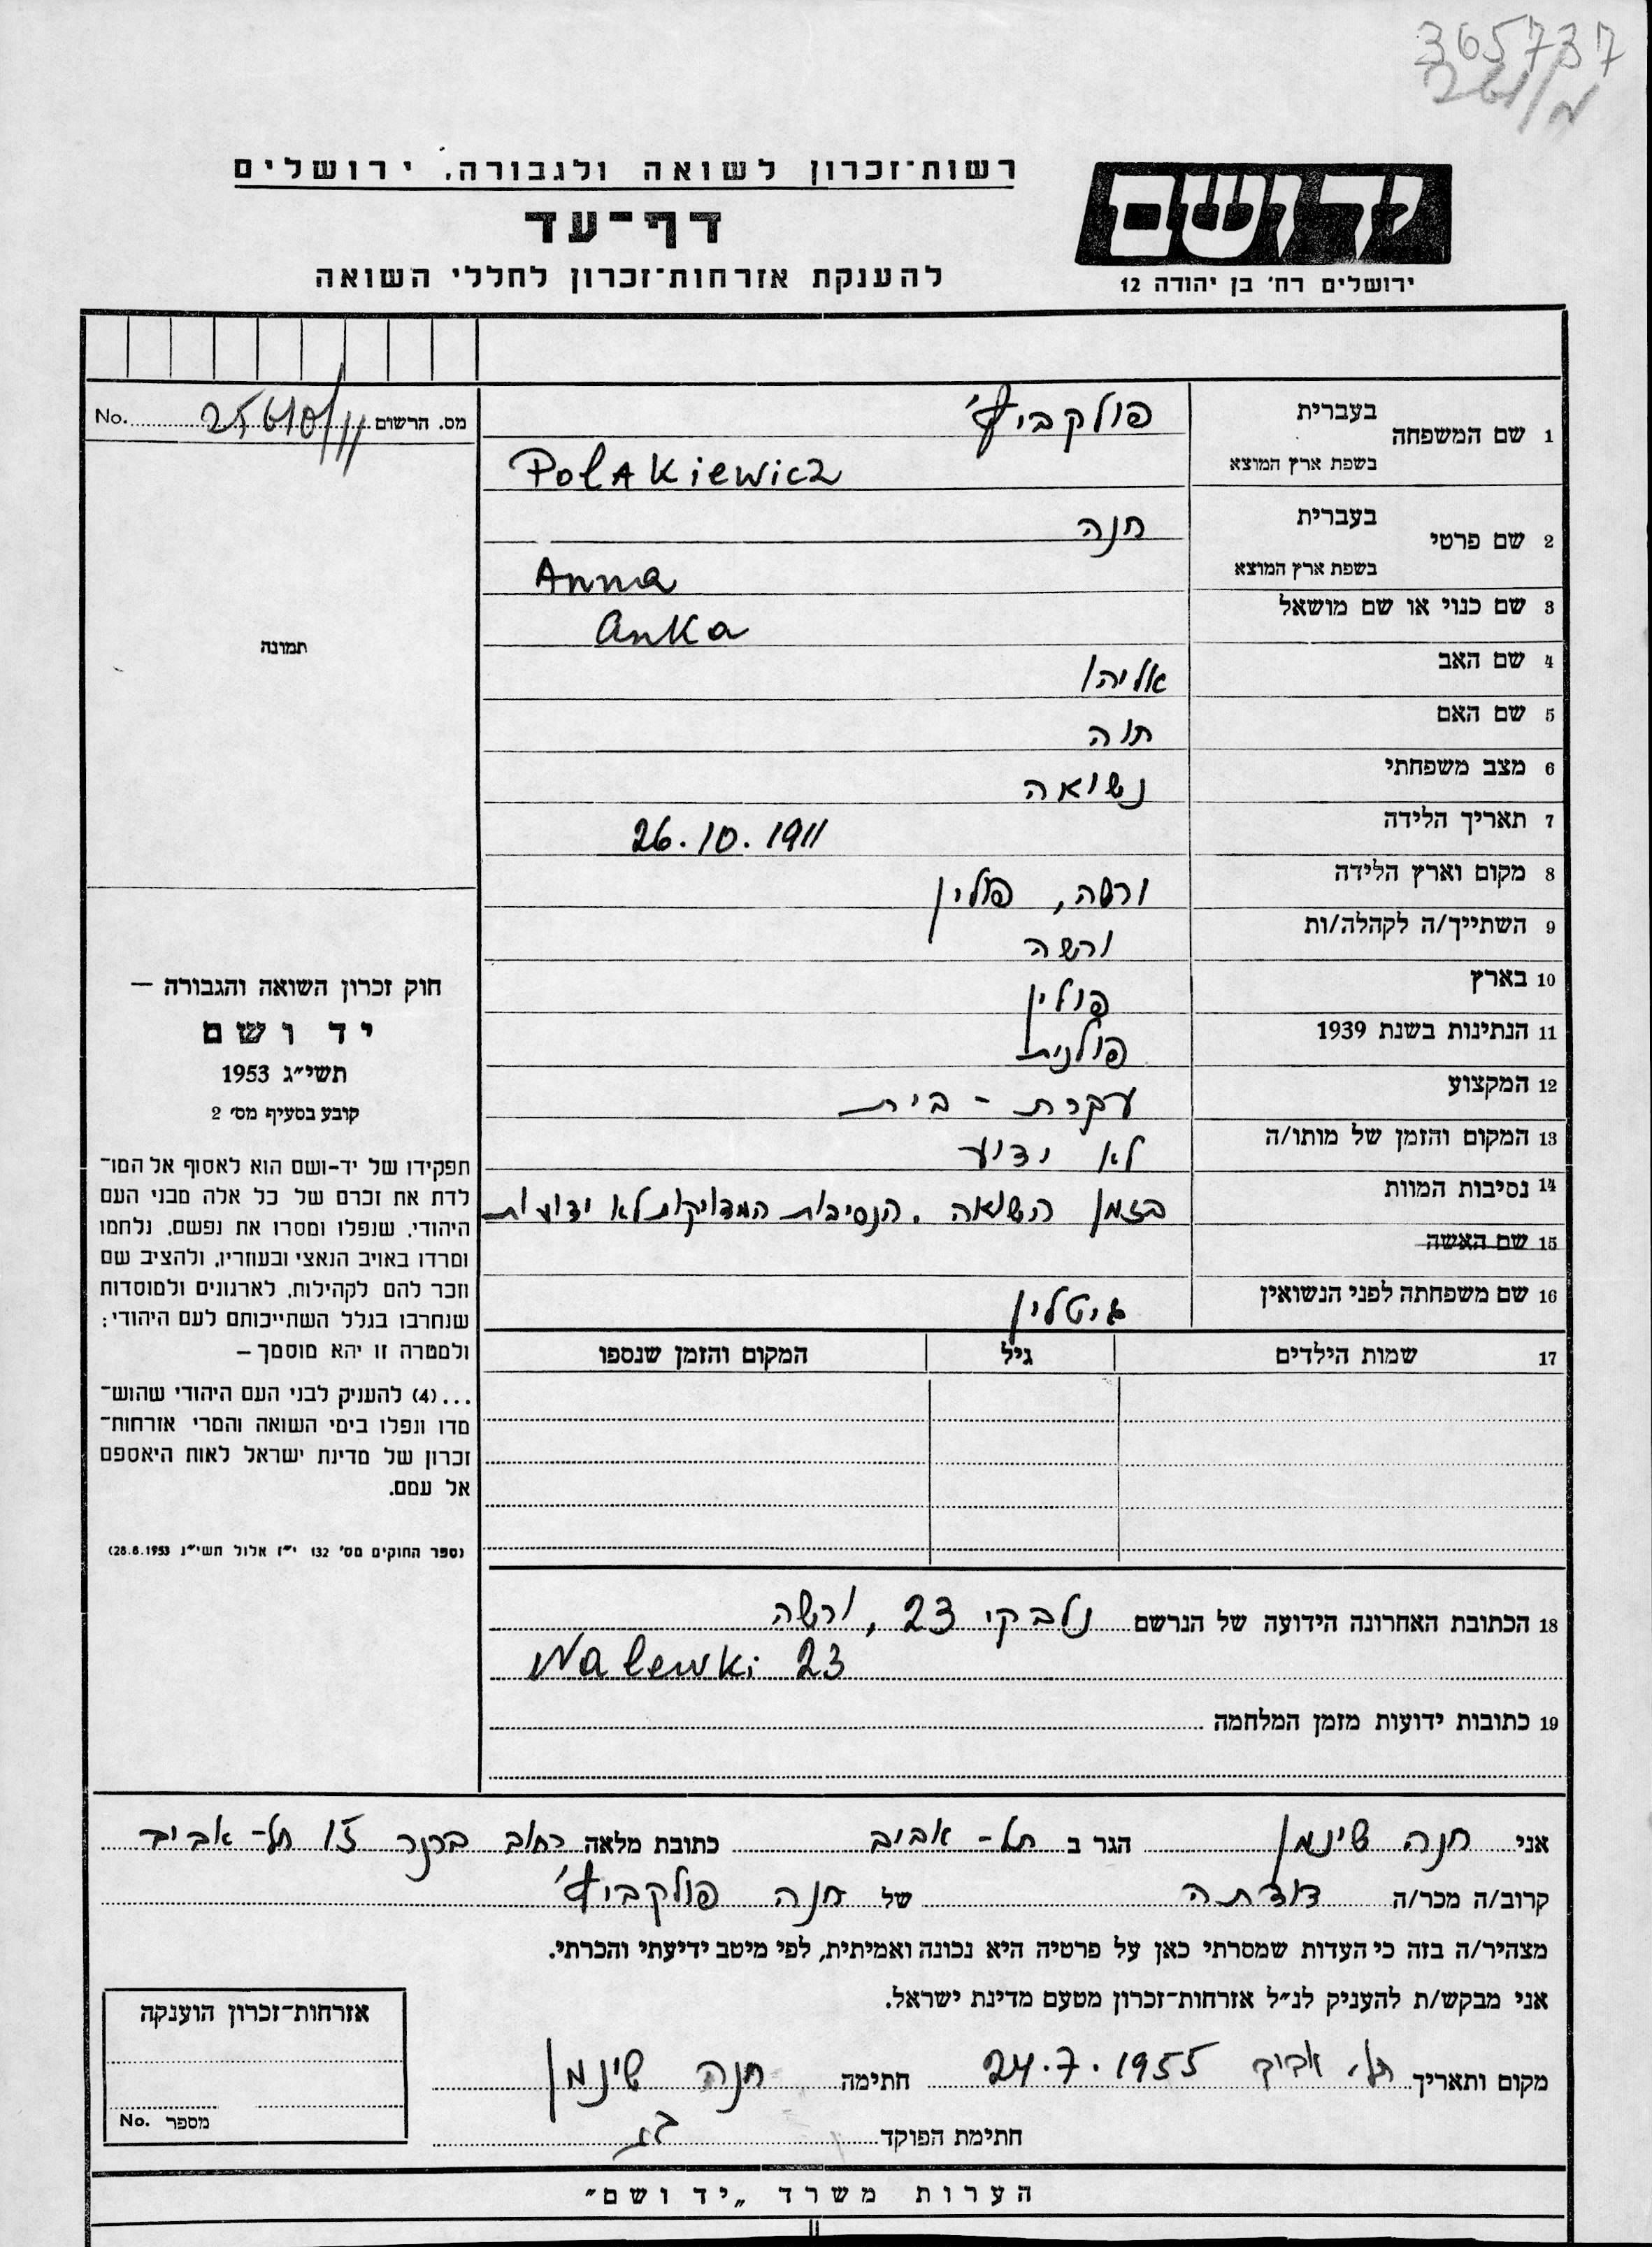 365737
רשות־זכרון לשואה ולגבורה, ירושלים
יד ושם
דף־עד
ירושלים רח' בן יהודה 12
להענקת אזרחות־זכרון לחללי השואה
1 שם המשפחה בעברית פולקביץ'
בשפת ארץ המוצא Polakiewicz
מס. הרשום No.
2 שם פרטי בעברית חנה
בשפת ארץ המוצא Anna
3 שם כנוי או שם מושאל Anka
תמונה
4 שם האב אליהו
5 שם האם חוה
6 מצב משפחתי נשואה
7 תאריך הלידה 26.10.1911
8 מקום וארץ הלידה ורשה, פולין
9 השתייך/ה לקהלה/ות ורשה
10 בארץ פולין
11 הנתינות בשנת 1939 פולנית
12 המקצוע עקרת - בית
13 המקום והזמן של מותו/ה לא ידוע
14 נסיבות המוות בזמן השואה. הנסיבות המדויקות לא ידועות
15 שם האשה
16 שם משפחתה לפני הנשואין
17 שמות הילדים גיל המקום והזמן שנספו
חוק זכרון השואה והגבורה —
יד ושם
תשי״ג 1953
קובע בסעיף מס' 2
תפקידו של יד-ושם הוא לאסוף אל המו־
לדת את זכרם של כל אלה מבני העם
היהודי, שנפלו ומסרו את נפשם, נלחמו
ומרדו באויב הנאצי ובעוזריו, ולהציב שם
וזכר להם לקהילות, לארגונים ולמוסדות
שנחרבו בגלל השתייכותם לעם היהודי;
ולמטרה זו יהא מוסמך —
...(4) להעניק לבני העם היהודי שהוש־
מדו ונפלו בימי השואה והמרי אזרחות־
זכרון של מדינת ישראל לאות היאספם
אל עמם.
(ספר החוקים מס' 132 י״ז אלול תשי״ג 28.8.1953)
18 הכתובת האחרונה הידועה של הנרשם נלבקי 23, ורשה
Nalewki 23
19 כתובות ידועות מזמן המלחמה
אני חנה שינמן הגר ב תל-אביב כתובת מלאה רחוב ברנר 15 תל-אביב
קרוב/ה מכר/ה דודתה של חנה פולקביץ'
מצהיר/ה בזה כי העדות שמסרתי כאן על פרטיה היא נכונה ואמיתית, לפי מיטב ידיעתי והכרתי.
אני מבקש/ת להעניק לנ״ל אזרחות־זכרון מטעם מדינת ישראל.
מקום ותאריך תל אביב 24.7.1955 חתימה חנה שינמן
חתימת הפוקד
אזרחות־זכרון הוענקה
מספר No.
הערות משרד „יד ושם״